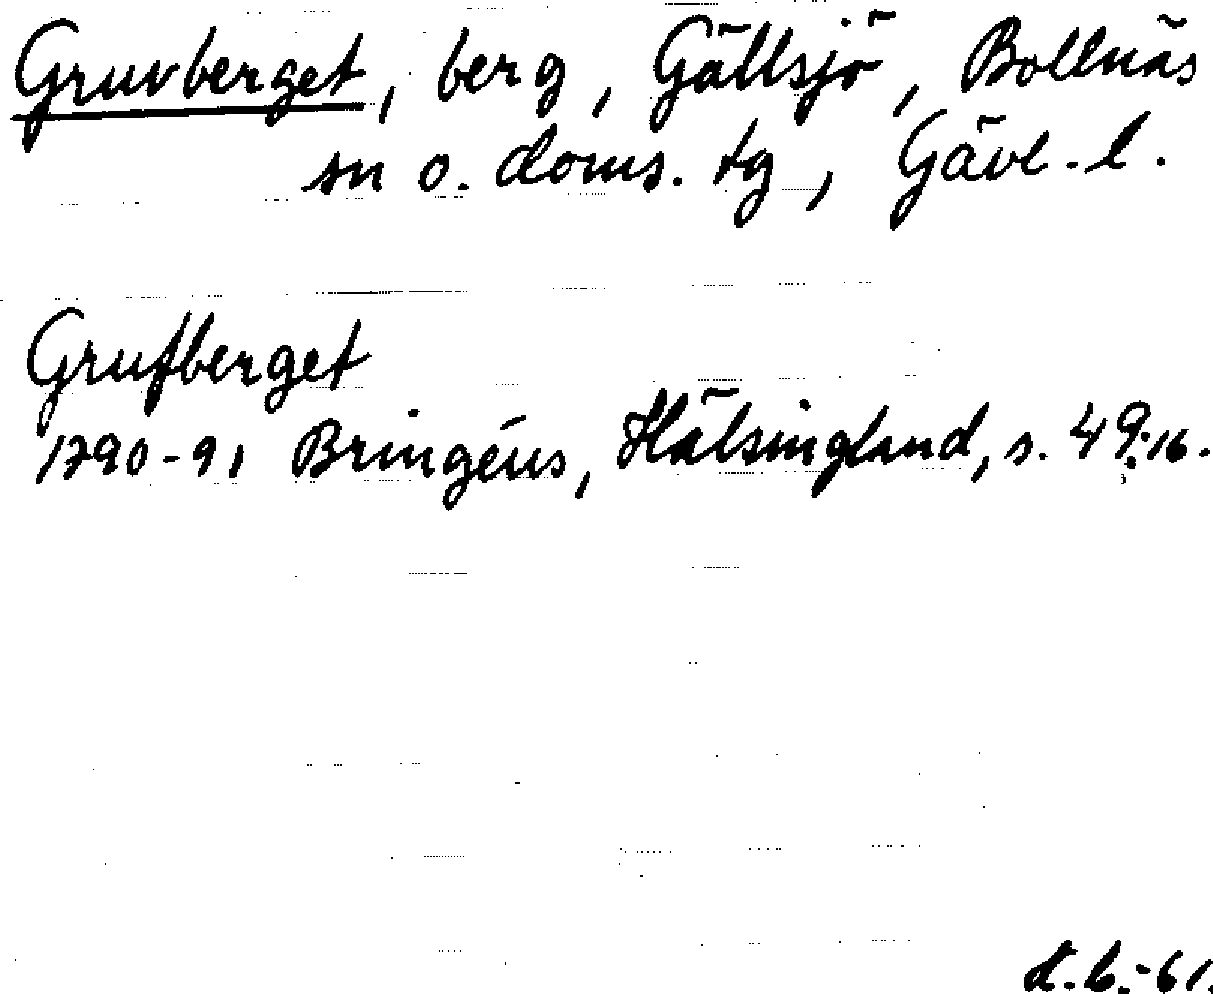 Gruvberget, berg, Gällsjö, Bollnäs
sn o. doms. tg, Gävl-l.
Grufberget
1790-91 Bringéus, Hälsingland, s. 49:16.
d.b.-61.